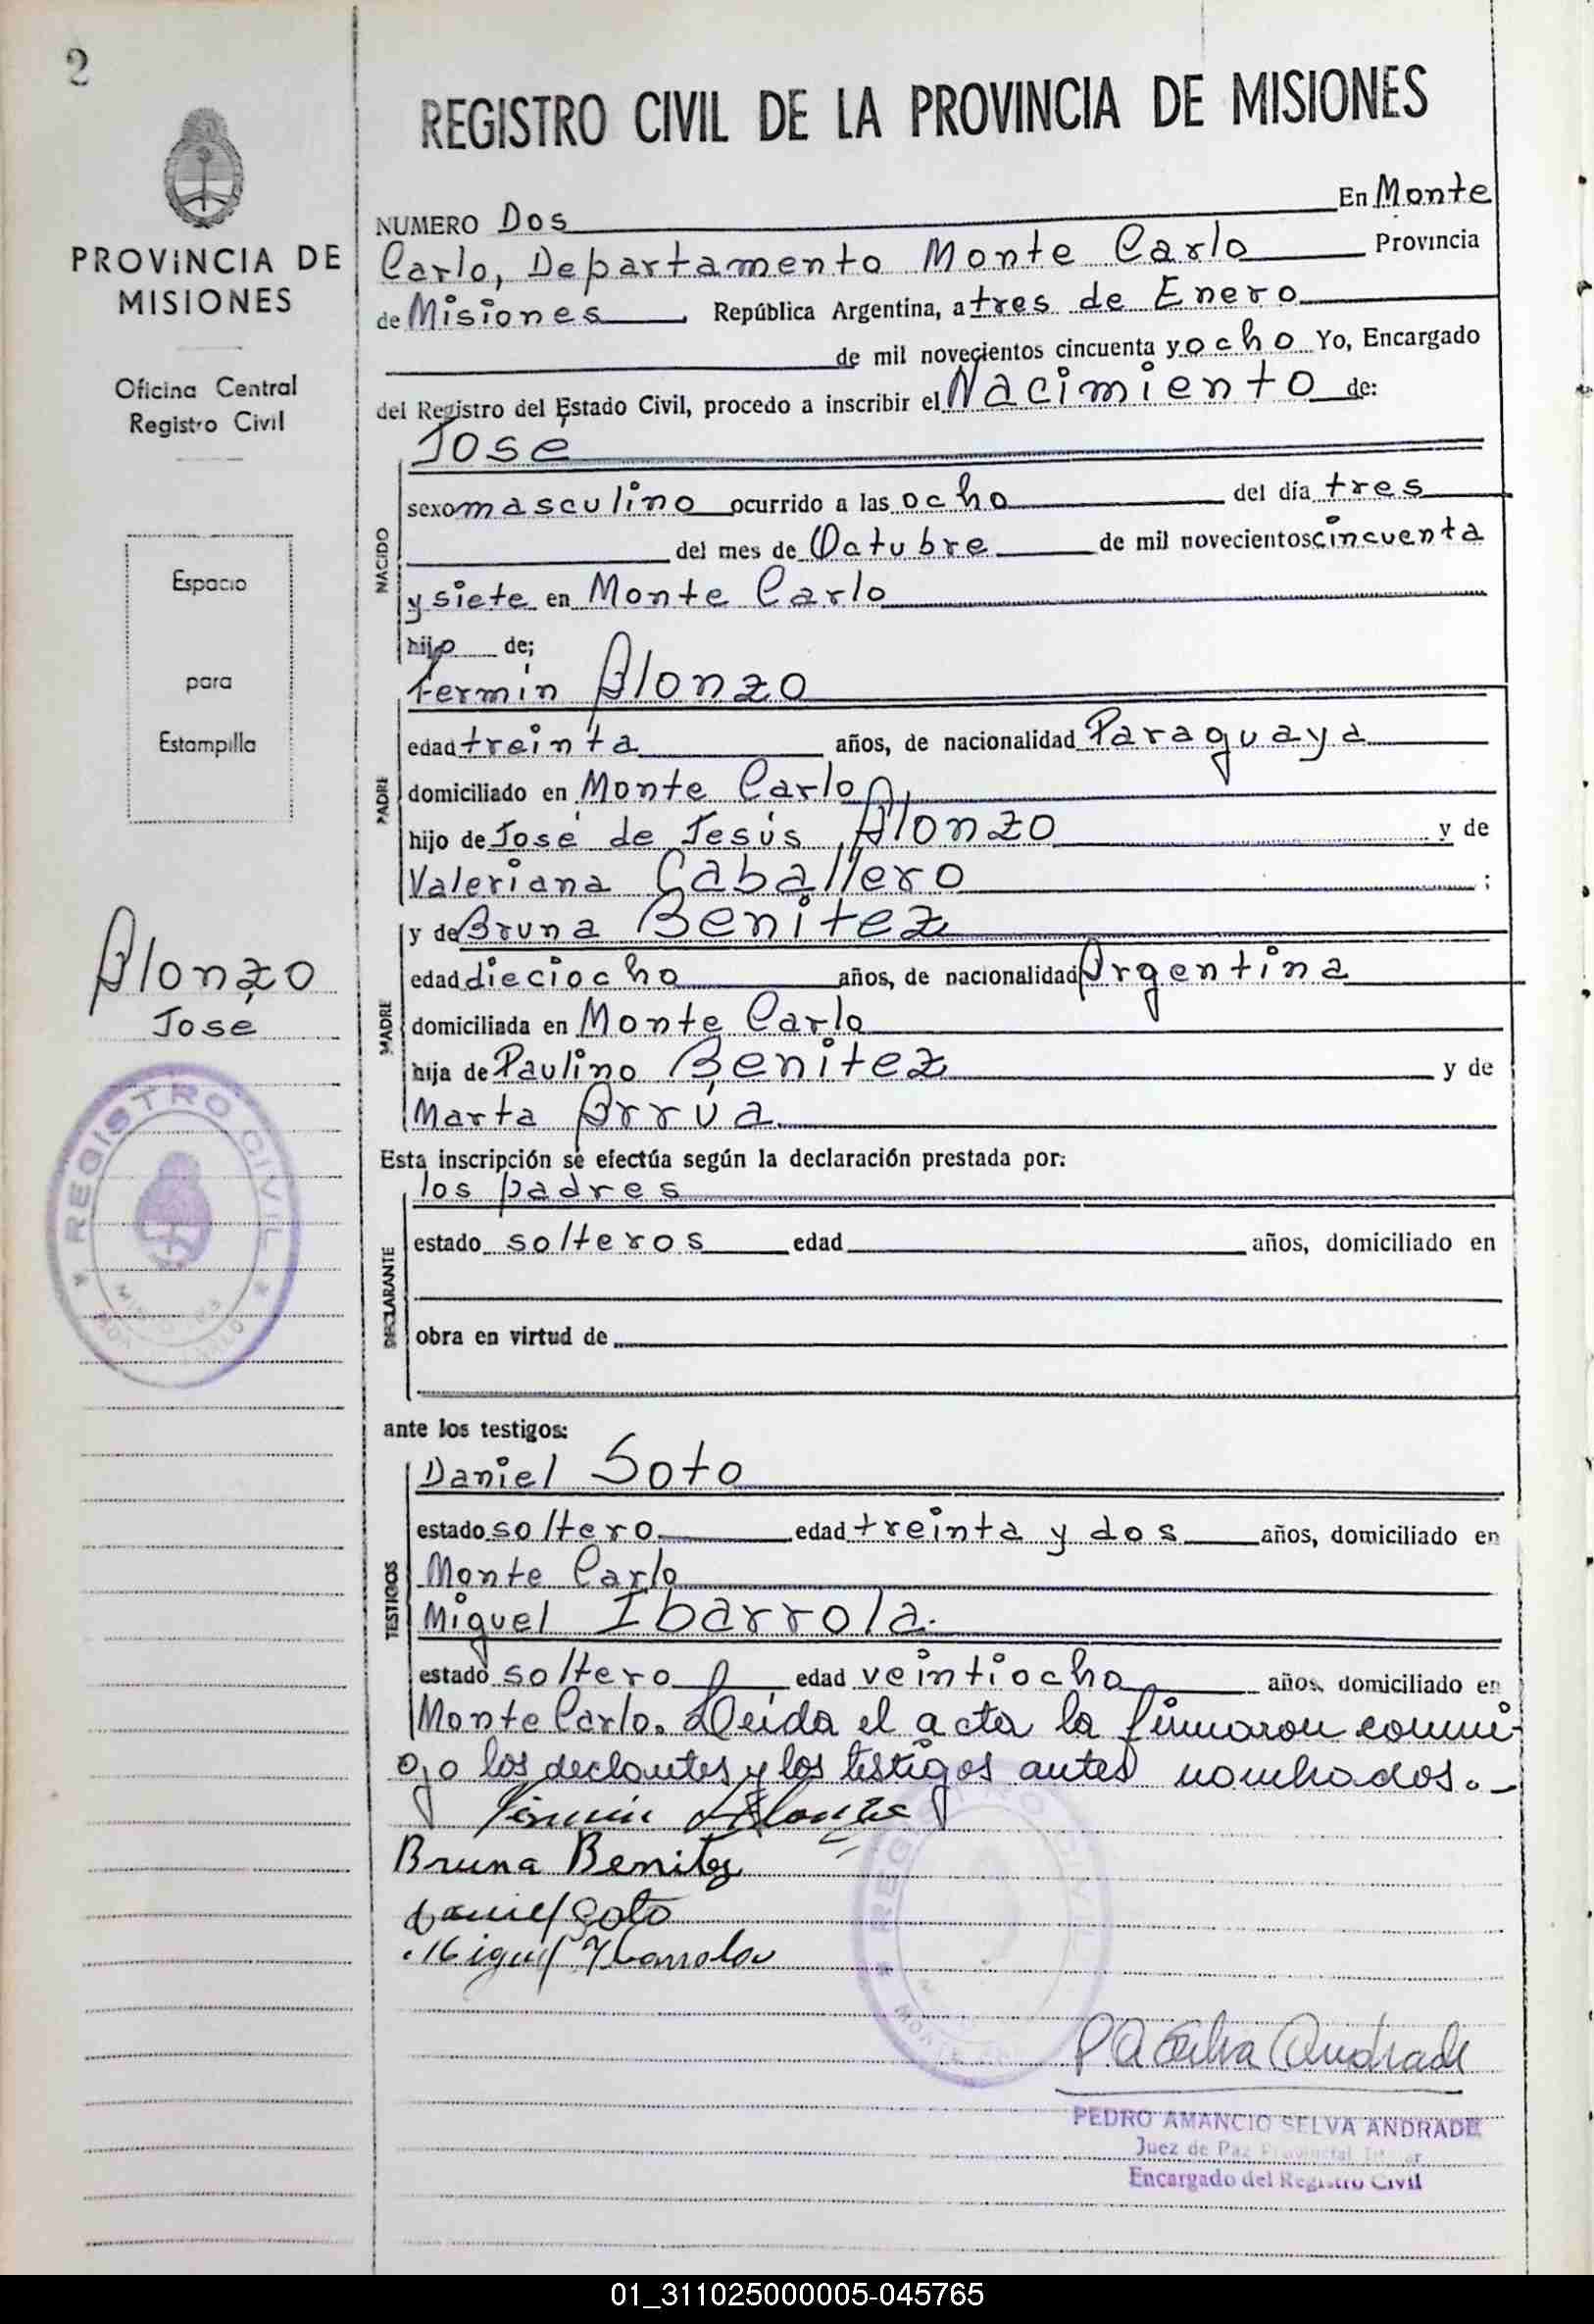 2
PROVINCIA DE
MISIONES
Oficina Central
Registro Civil
Espacio
para
Estampilla
Alonzo
José
REGISTRO CIVIL
REGISTRO CIVIL DE LA PROVINCIA DE MISIONES
NUMERO Dos En Monte
Carlo, Departamento Monte Carlo Provincia
de Misiones, República Argentina, a tres de Enero
de mil novecientos cincuenta y ocho Yo, Encargado
del Registro del Estado Civil, procedo a inscribir el Nacimiento de:
José
sexo masculino ocurrido a las ocho del día tres
del mes de Octubre de mil novecientos cincuenta
y siete en Monte Carlo
hijo de;
NACIDO
Fermín Alonzo
edad treinta años, de nacionalidad Paraguaya
domiciliado en Monte Carlo
hijo de José de Jesús Alonzo y de
Valeriana Caballero ;
PADRE
y de Bruna Benitez
edad dieciocho años, de nacionalidad Argentina
domiciliada en Monte Carlo
hija de Paulino Benitez y de
Marta Arrúa
MADRE
Esta inscripción se efectúa según la declaración prestada por:
los padres
estado solteros edad años, domiciliado en
obra en virtud de
DECLARANTE
ante los testigos:
Daniel Soto
estado soltero edad treinta y dos años, domiciliado en
Monte Carlo
Miguel Ibarrola.
estado soltero edad veintiocho años, domiciliado en
TESTIGOS
Monte Carlo. Leída el acta la firmaron conmi-
go los declantes y los testigos antes nombrados.-
Fermin Alonzo
Bruna Benitez
Daniel Soto
Miguel Ibarrola
REGISTRO CIVIL
P A Selva Andrade
PEDRO AMANCIO SELVA ANDRADE
Juez de Paz Provincial
Encargado del Registro Civil
01_311025000005-045765